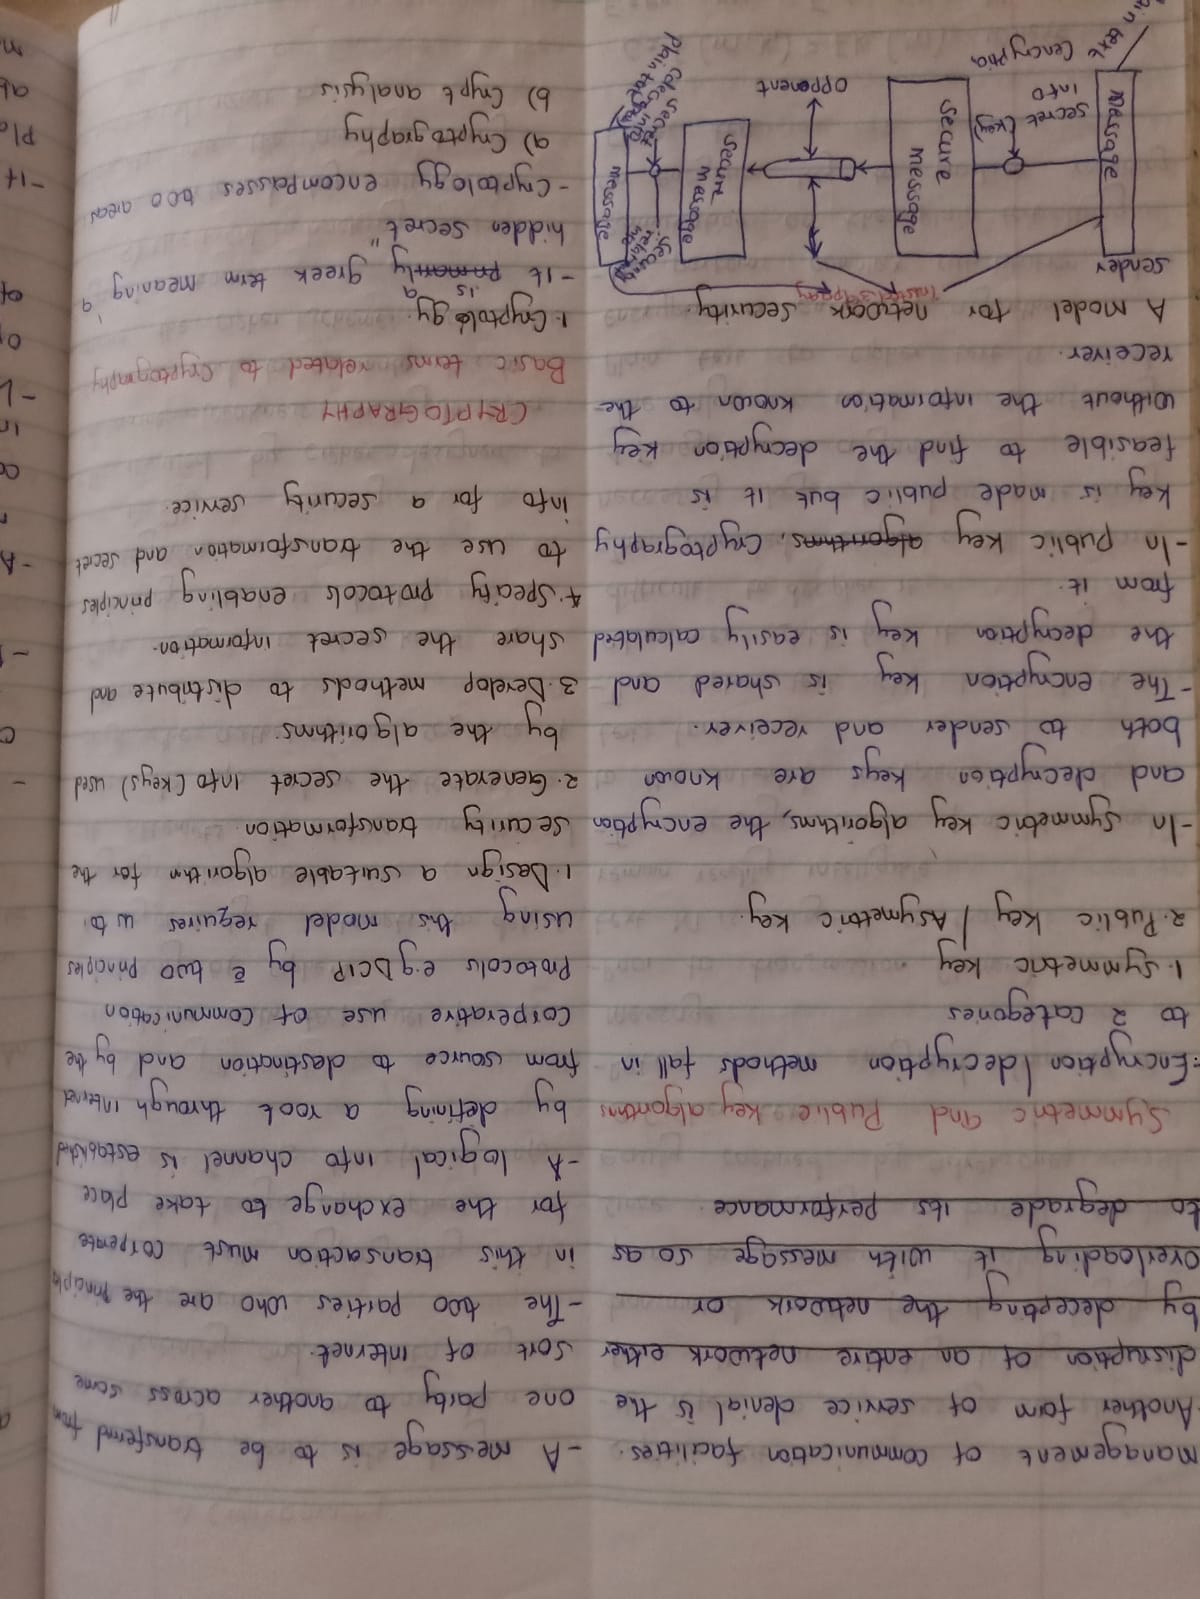 management of communication facilities.
Another form of service denial is the
disruption of an entire network either
by decepting the network or
overloading it with message so as
to degrade its performance.
Symmetric and Public key algorithms
Encryption/decryption methods fall in
to 2 categories
1. Symmetric key
2. Public key / Asymetric key.
-In symmetric key algorithms, the encryption
and decryption keys are known
both to sender and receiver.
-The encryption key is shared and
the decryption key is easily calculated
from it.
-In public key algorithms, Cryptography
key is made public but it is
feasible to find the decryption key
without the information known to the
receiver.
A Model for network security.
Trusted 3rd party
Sender
message
Plain text
secret (key)
info
(encryptio
secure
message
opponent
secure
message
security
related
secret
info
Plain text
message
- A message is to be transferred from
one party to another across some
sort of internet.
-The two parties who are the principles
in this transaction must corperate
for the exchange to take place
-A logical info channel is established
by defining a root through internet
from source to destination and by the
corperative use of communication
Protocols e.g DCIP by e two principles
using this model requires us to
1. Design a suitable algorithm for the
security transformation.
2. Generate the secret info (keys) used
by the algorithms.
3. Develop methods to distribute and
share the secret information.
4. Specify protocols enabling principles
to use the transformation and secret
info for a security service.
CRYPTOGRAPHY
Basic terms related to Cryptography
1. Cryptology.
-It primarily is a greek term meaning "a
hidden secret"
-Cryptology encompasses two areas
a) Cryptography
b) Crypt analysis